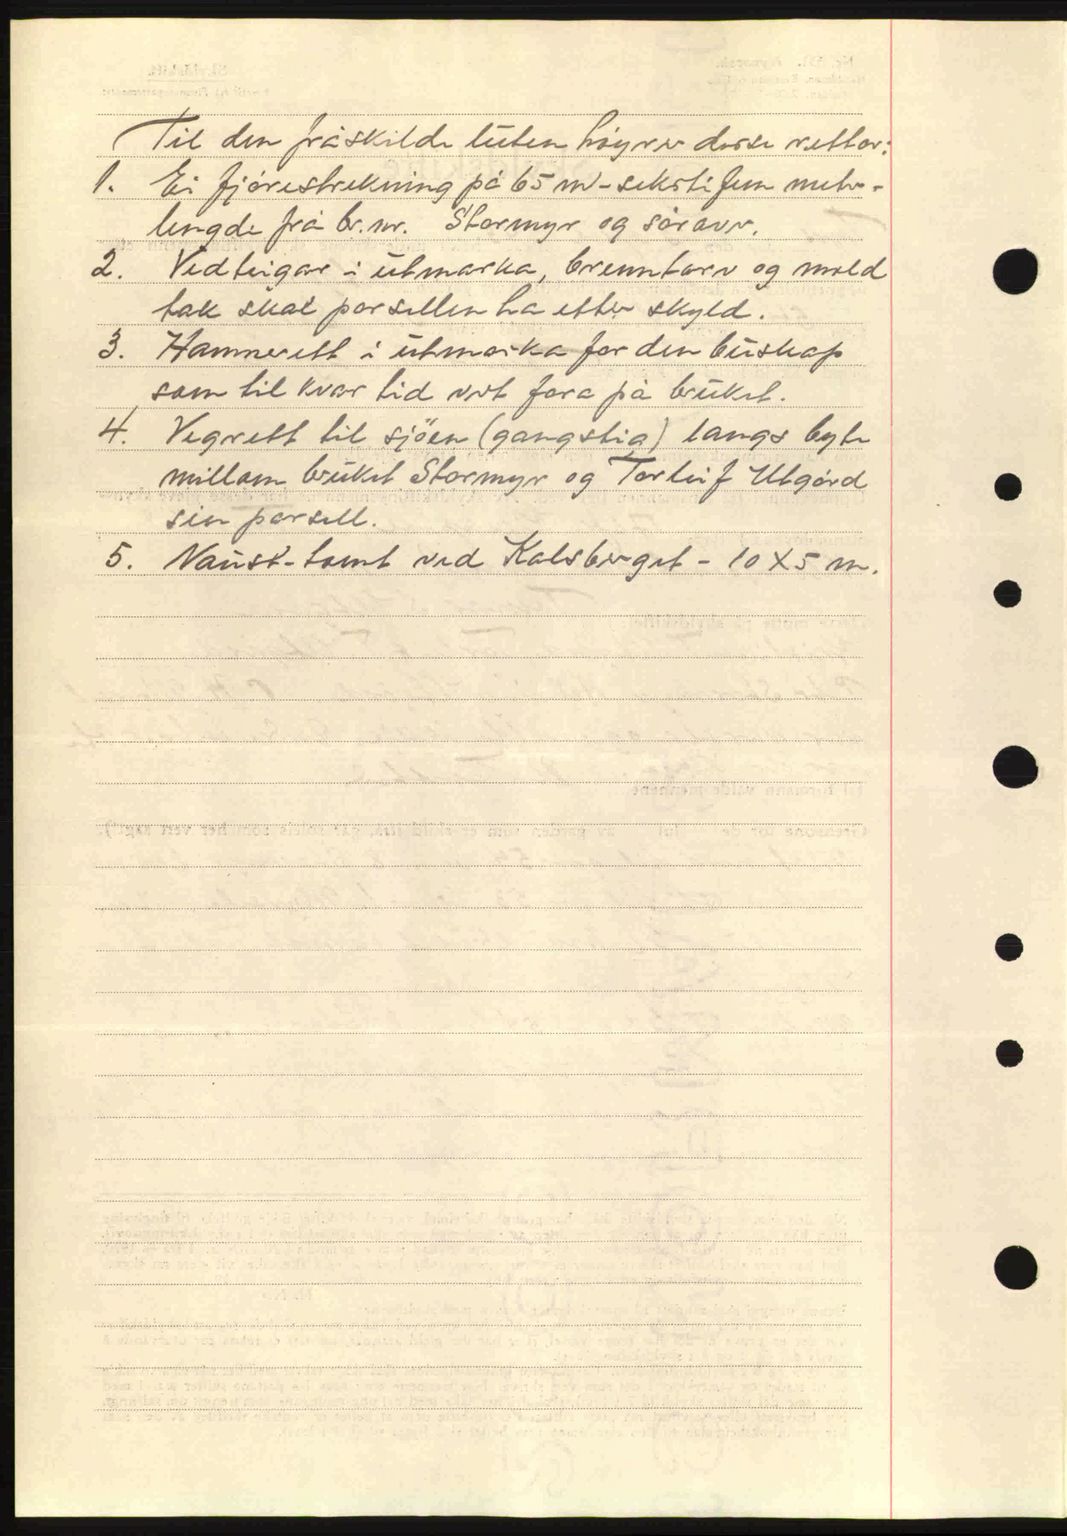 Til den fråskilde luten høyrer desse rettar:
1. Ei fjørestrekning på 65 m - seksti fem meter -
lengde frå br.nr. Stormyr og sørover.
2. Vedteigar i utmarka, brenntorv og mold
tak skal parsellen ha etter skyld.
3. Hamnerett i utmarka for den buskap
som til kvar tid vert fora på bruket.
4. Vegrett til sjöen (gangstig) langs byte
millom bruket Stormyr og Torleif Utgård
sin parsell.
5. Naust-tomt ved Kalsberget - 10 X 5 m.